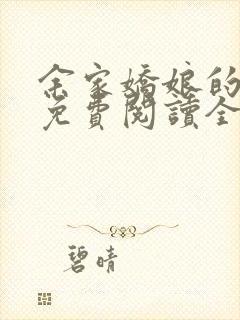 余家嬌娘的
免費閱讀全
碧晴